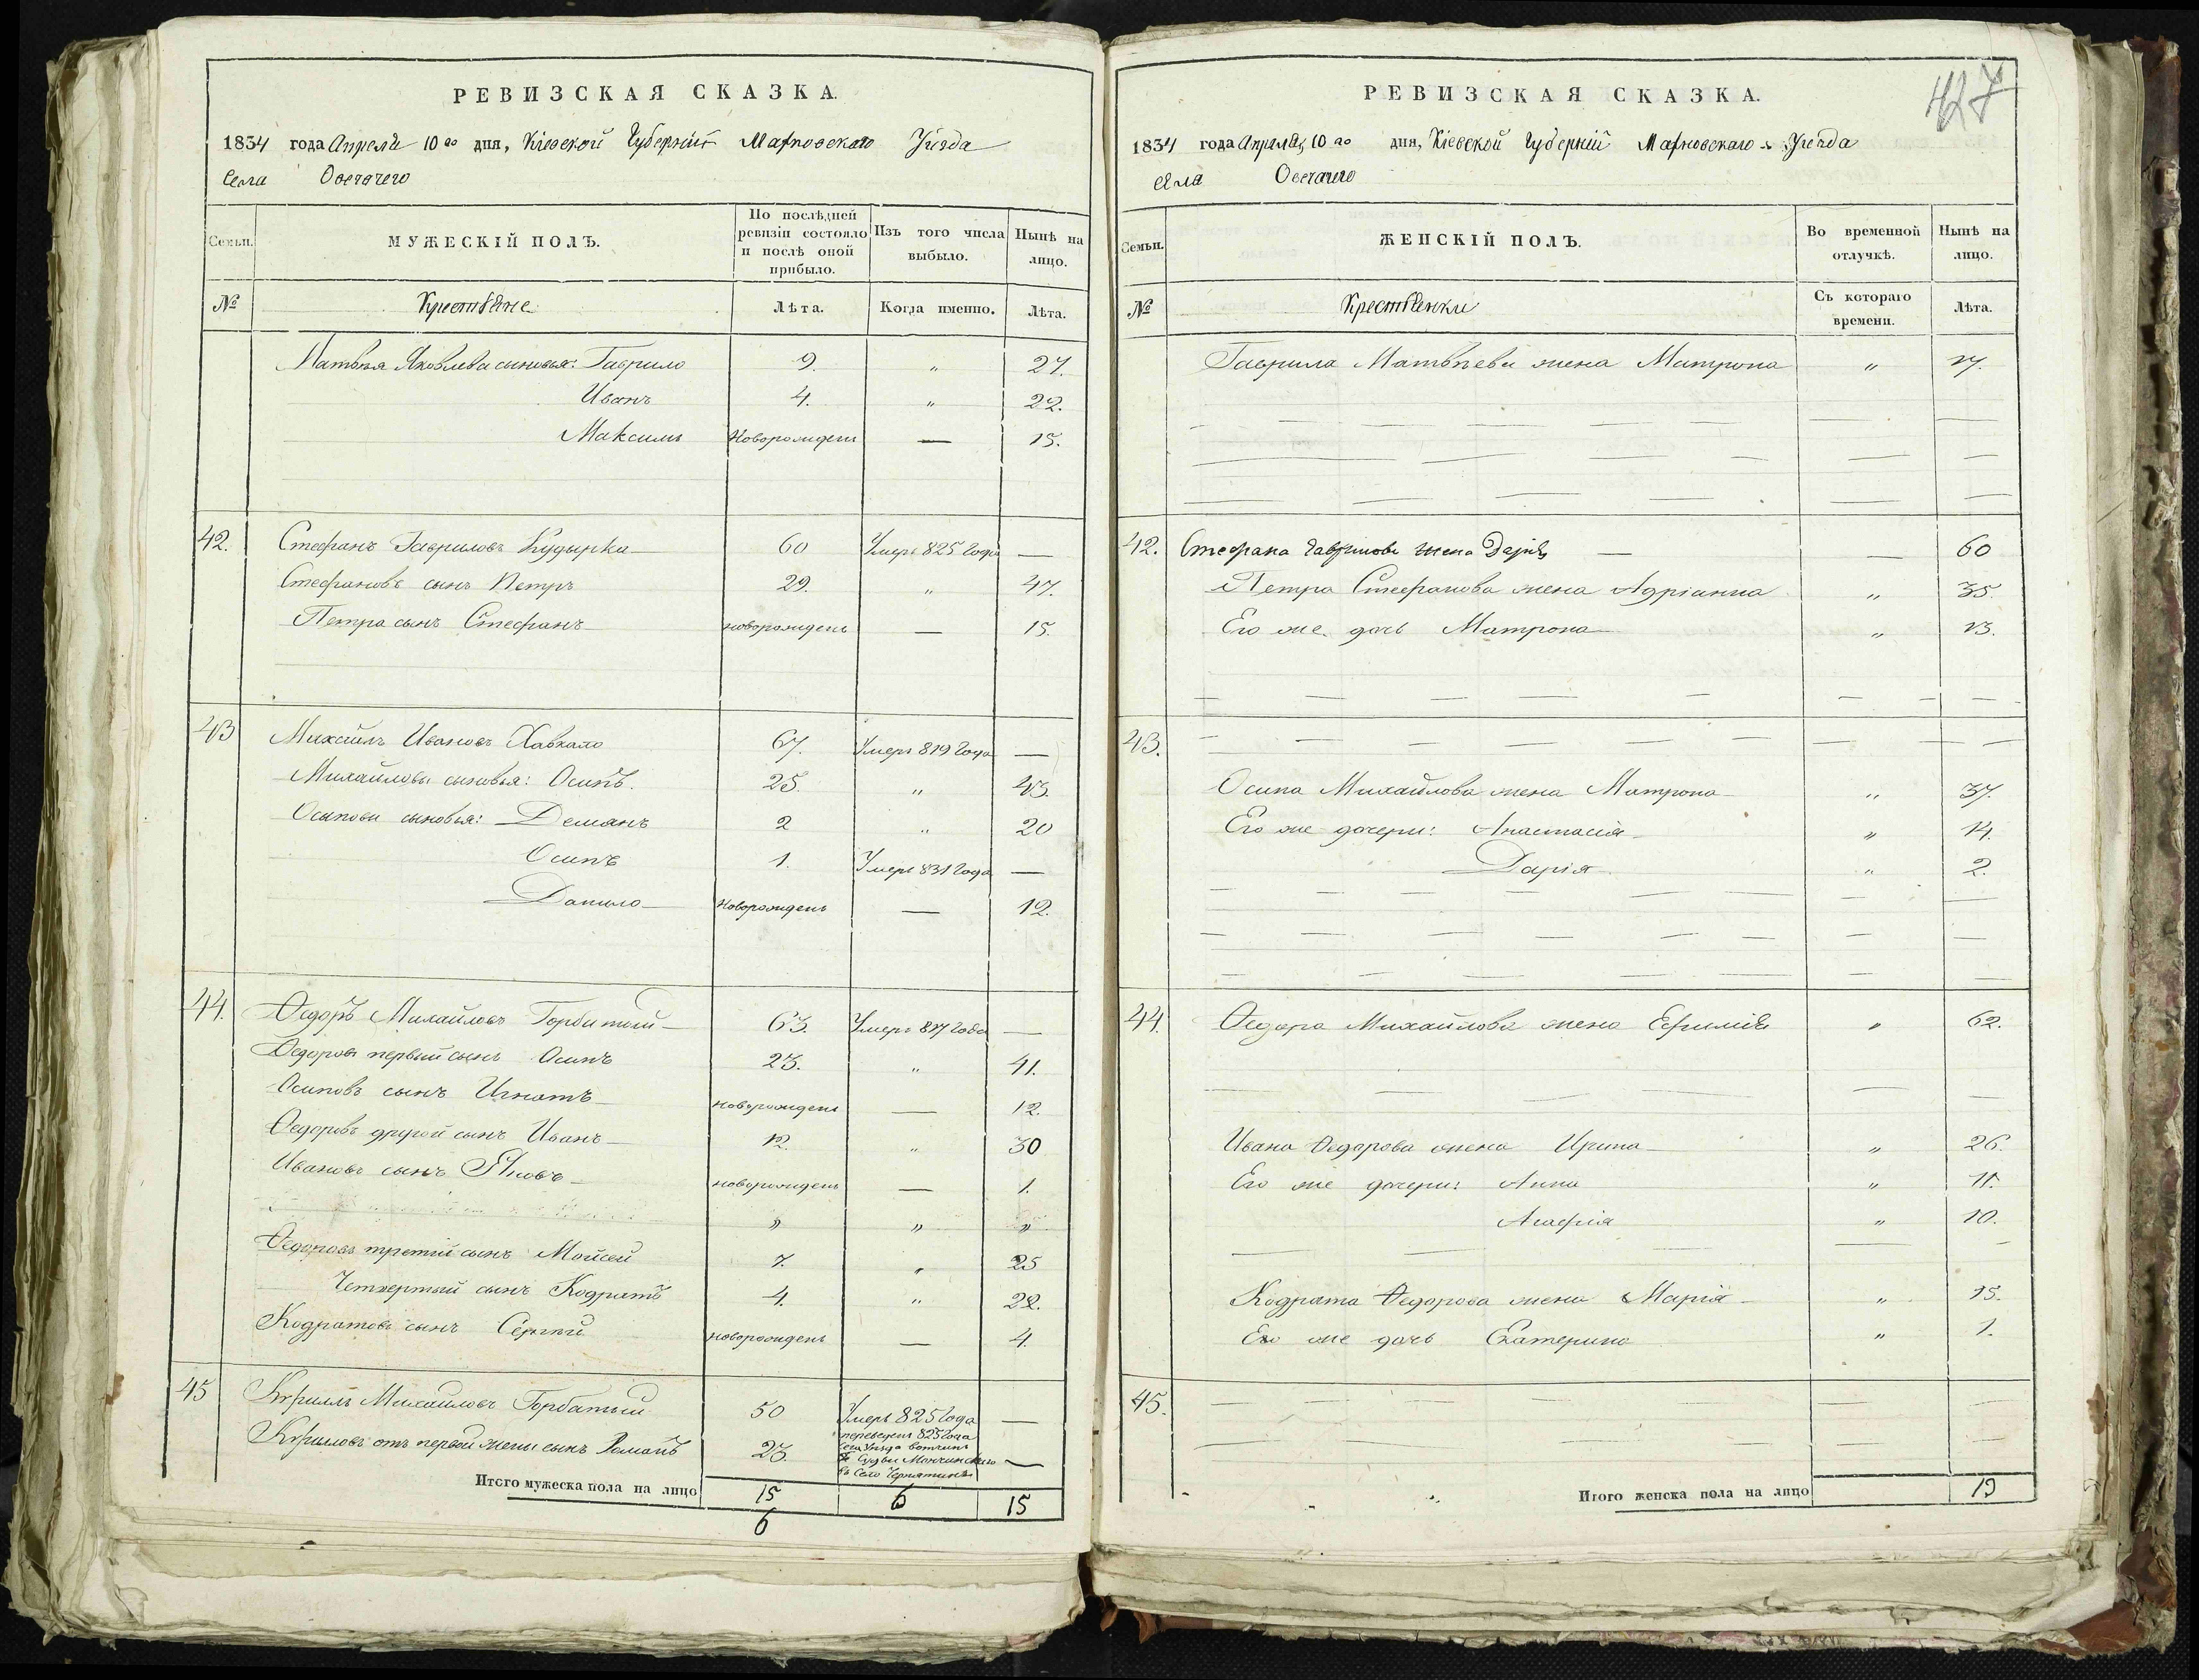 РЕВИЗСКАЯ СКАЗКА.
1834 года Апреля 10го дня, Кіевской Губерніи Махновскаго Уезда
Села Овсячего
Семьи. МУЖЕСКІЙ ПОЛЪ. По послѣдней ревизіи состояло и послѣ оной прибыло. Изъ того числа выбыло. Нынѣ на лицо.
№ Крестьяне Лѣта. Когда именно. Лѣта.
Матвѣя Яковлева сыновья: Гаврило 9. " 27.
Иванъ 4. " 22.
Максимъ новорожденъ — 15.
42. Стефанъ Гавриловъ 60 Умеръ 825 года —
Стефановъ сынъ Петръ 29. " 47.
Петра сынъ Стефанъ новорожденъ — 15.
43 Михаилъ Ивановъ 67. Умеръ 819 года —
Михайловы сыновья: Осипъ. 25. " 43.
Осиповы сыновья: Демянъ 2 " 20
Осипъ 1. Умеръ 831 года —
Данило новорожденъ — 12.
44. Ѳедоръ Михайловъ Горбатый 63. Умеръ 817 года —
Ѳедоровъ первый сынъ Осипъ 23. " 41.
Осиповъ сынъ Игнатъ новорожденъ — 12.
Ѳедоровъ другой сынъ Иванъ 12. " 30
Ивановъ сынъ Яковъ новорожденъ — 1.
" " "
Ѳедоровъ третій сынъ Мойсей 7. " 25
Четвертый сынъ Кодратъ 4. " 22.
Кодратовъ сынъ Сергѣй новорожденъ — 4.
45 Кирилъ Михайловъ Горбатый 50 Умеръ 825 года —
Кириловъ отъ первой жены сынъ Романъ 23. переведенъ 825 года —
въ Село
Итого мужеска пола на лицо 15 6 15
6
427
РЕВИЗСКАЯ СКАЗКА.
1834 года Апреля 10го дня, Кіевской Губерніи Махновскаго Уезда
Села Овсячего
Семьи. ЖЕНСКІЙ ПОЛЪ. Во временной отлучкѣ. Нынѣ на лицо.
№ Крестьянки Съ котораго времени. Лѣта.
Гаврила Матвѣева жена Матрона "
42. Стефана Гаврилова жена Дарія — — 60
Петра Стефанова жена Адріанна " 35.
Его же дочь Матрона " 13.
43.
Осипа Михайлова жена Матрона " 37.
Его же дочери: Анастасія " 14.
Дарія " 2.
44. Ѳедора Михайлова жена Ефимія " 62.
Ивана Ѳедорова жена Ирина " 26.
Его же дочери: Анна " 11.
Агафія " 10.
Кодрата Ѳедорова жена Марія "
Его же дочь Екатерина " 1.
45.
Итого женска пола на лицо 13